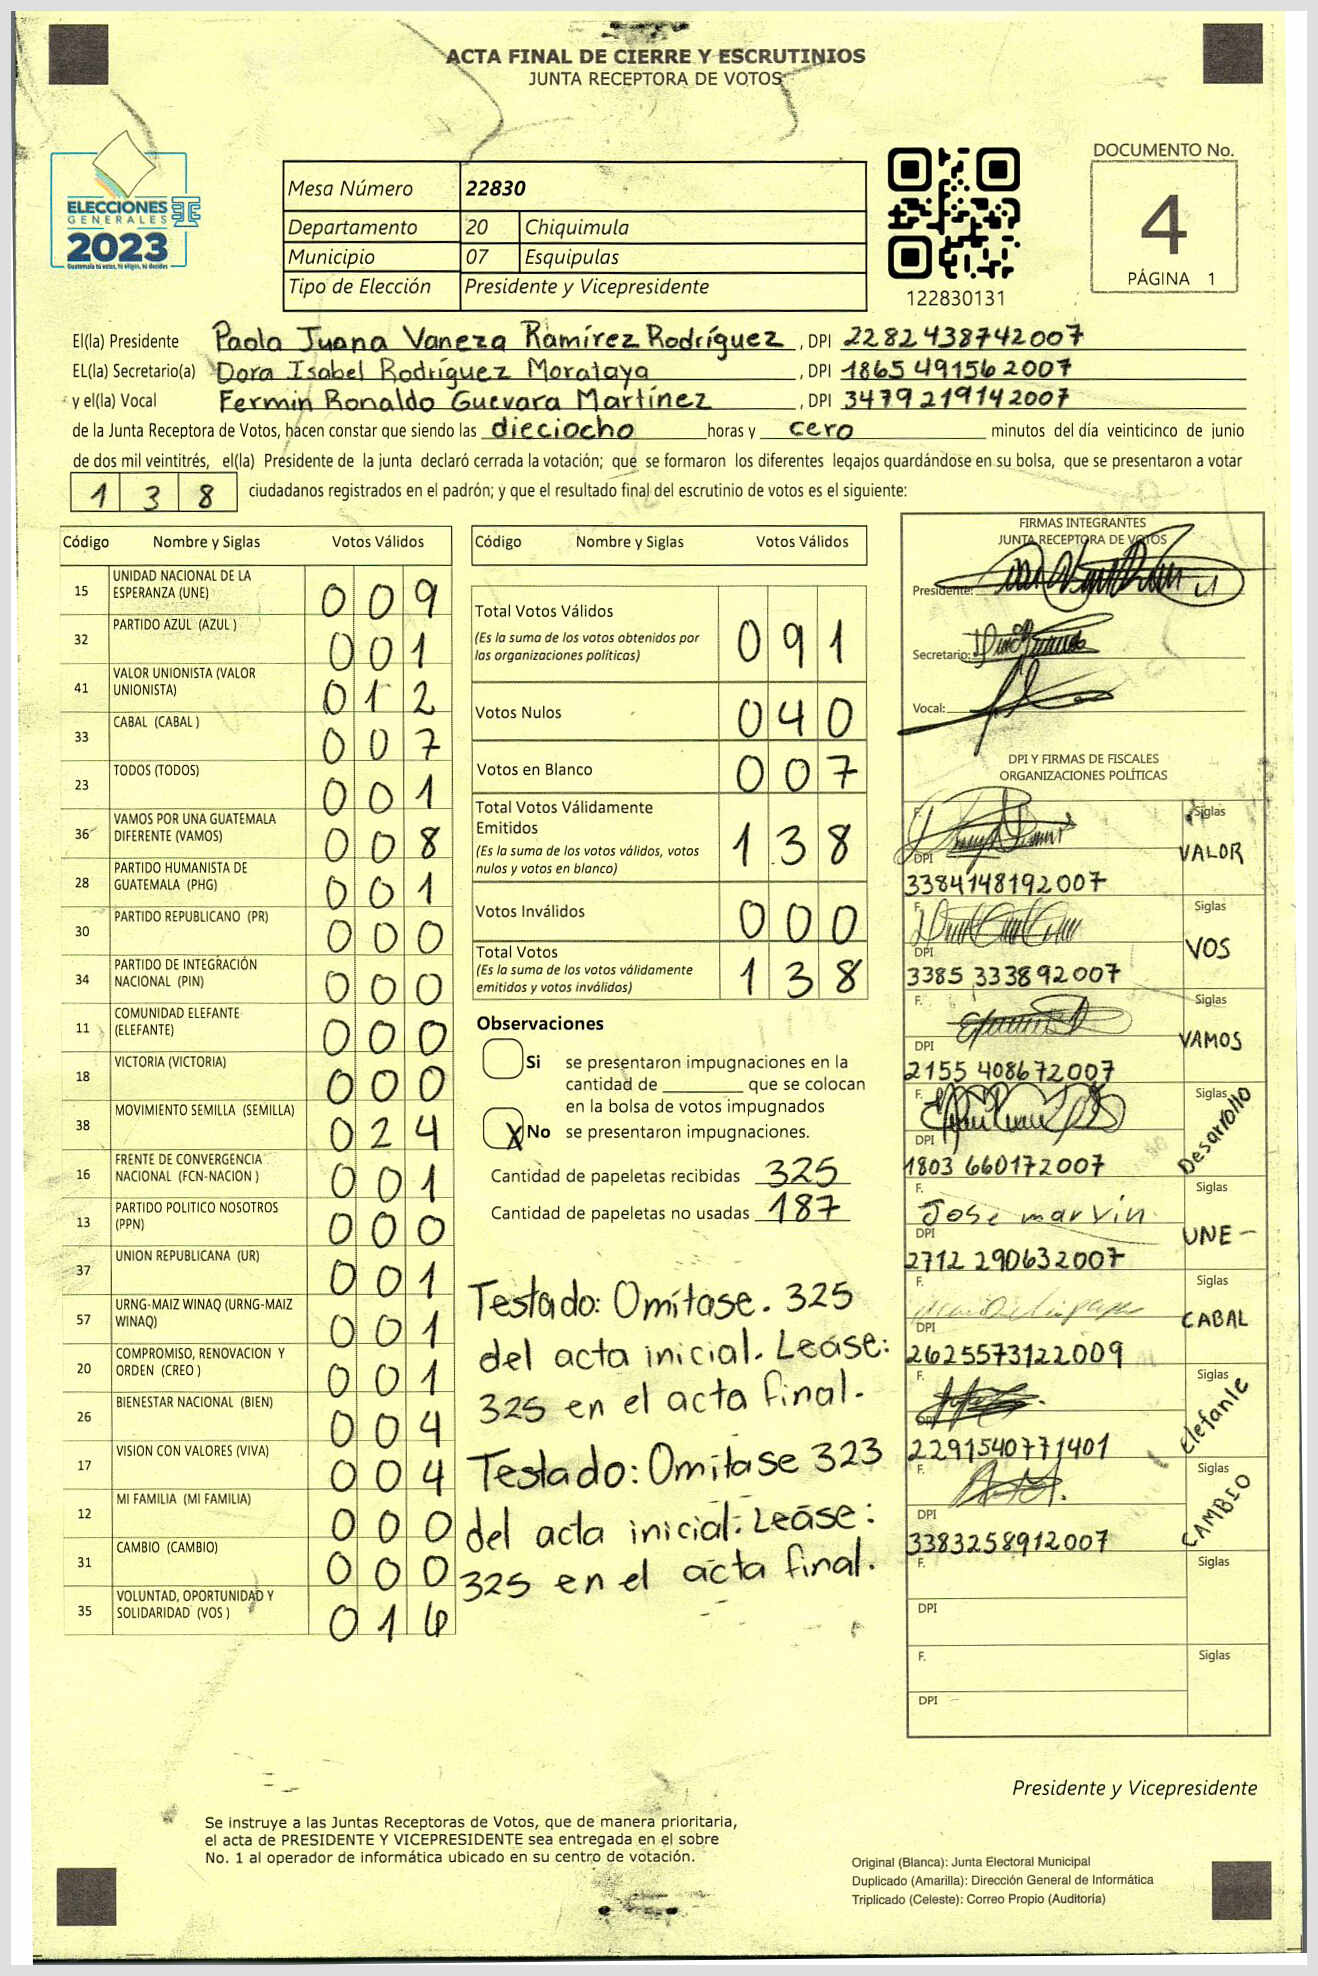 ACTA FINAL DE CIERRE Y ESCRUTINIOS
JUNTA RECEPTORA DE VOTOS
ELECCIONES
GENERALES
2023
Guatemala tú votas, tú eliges, tú decides
Mesa Número 22830
Departamento 20 Chiquimula
Municipio 07 Esquipulas
Tipo de Elección Presidente y Vicepresidente
122830131
DOCUMENTO No.
4
PÁGINA 1
El(la) Presidente Paola Juana Vaneza Ramírez Rodríguez , DPI 2282438742007
EL(la) Secretario(a) Dora Isabel Rodríguez Morataya , DPI 1865491562007
y el(la) Vocal Fermin Ronaldo Guevara Martínez , DPI 3479219142007
de la Junta Receptora de Votos, hacen constar que siendo las dieciocho horas y cero minutos del día veinticinco de junio
de dos mil veintitrés, el(la) Presidente de la junta declaró cerrada la votación; que se formaron los diferentes legajos guardándose en su bolsa, que se presentaron a votar
1 3 8 ciudadanos registrados en el padrón; y que el resultado final del escrutinio de votos es el siguiente:
Código Nombre y Siglas Votos Válidos
15 UNIDAD NACIONAL DE LA ESPERANZA (UNE) 0 0 9
32 PARTIDO AZUL (AZUL ) 0 0 1
41 VALOR UNIONISTA (VALOR UNIONISTA) 0 1 2
33 CABAL (CABAL ) 0 0 7
23 TODOS (TODOS) 0 0 1
36 VAMOS POR UNA GUATEMALA DIFERENTE (VAMOS) 0 0 8
28 PARTIDO HUMANISTA DE GUATEMALA (PHG) 0 0 1
30 PARTIDO REPUBLICANO (PR) 0 0 0
34 PARTIDO DE INTEGRACIÓN NACIONAL (PIN) 0 0 0
11 COMUNIDAD ELEFANTE (ELEFANTE) 0 0 0
18 VICTORIA (VICTORIA) 0 0 0
38 MOVIMIENTO SEMILLA (SEMILLA) 0 2 4
16 FRENTE DE CONVERGENCIA NACIONAL (FCN-NACION ) 0 0 1
13 PARTIDO POLITICO NOSOTROS (PPN) 0 0 0
37 UNION REPUBLICANA (UR) 0 0 1
57 URNG-MAIZ WINAQ (URNG-MAIZ WINAQ) 0 0 1
20 COMPROMISO, RENOVACION Y ORDEN (CREO ) 0 0 1
26 BIENESTAR NACIONAL (BIEN) 0 0 4
17 VISION CON VALORES (VIVA) 0 0 4
12 MI FAMILIA (MI FAMILIA) 0 0 0
31 CAMBIO (CAMBIO) 0 0 0
35 VOLUNTAD, OPORTUNIDAD Y SOLIDARIDAD (VOS ) 0 1 6
Código Nombre y Siglas Votos Válidos
Total Votos Válidos 0 9 1
(Es la suma de los votos obtenidos por
las organizaciones políticas)
Votos Nulos 0 4 0
Votos en Blanco 0 0 7
Total Votos Válidamente
Emitidos 1 3 8
(Es la suma de los votos válidos, votos
nulos y votos en blanco)
Votos Inválidos 0 0 0
Total Votos 1 3 8
(Es la suma de los votos válidamente
emitidos y votos inválidos)
Observaciones
Si se presentaron impugnaciones en la
cantidad de que se colocan
en la bolsa de votos impugnados
X No se presentaron impugnaciones.
Cantidad de papeletas recibidas 325
Cantidad de papeletas no usadas 187
Testado: Omítase. 325
del acta inicial. Lease:
325 en el acta final.
Testado: Omitase 323
del acta inicial. Lease:
325 en el acta final.
FIRMAS INTEGRANTES
JUNTA RECEPTORA DE VOTOS
Presidente:
Secretario:
Vocal:
DPI Y FIRMAS DE FISCALES
ORGANIZACIONES POLÍTICAS
F. Siglas
DPI VALOR
3384148192007
F. Siglas
DPI VOS
3385 333892007
F. Siglas
DPI VAMOS
2155 408672007
F. Siglas
DPI Desarrollo
1803 660172007
F. Jose marvin Siglas
DPI UNE-
2712 290632007
F. Siglas
DPI CABAL
2625573122009
F. Siglas
DPI Elefante
2291540771401
F. Siglas
DPI CAMBIO
3383258912007
F. Siglas
DPI
F. Siglas
DPI
Presidente y Vicepresidente
Se instruye a las Juntas Receptoras de Votos, que de manera prioritaria,
el acta de PRESIDENTE Y VICEPRESIDENTE sea entregada en el sobre
No. 1 al operador de informática ubicado en su centro de votación.
Original (Blanca): Junta Electoral Municipal
Duplicado (Amarilla): Dirección General de Informática
Triplicado (Celeste): Correo Propio (Auditoría)